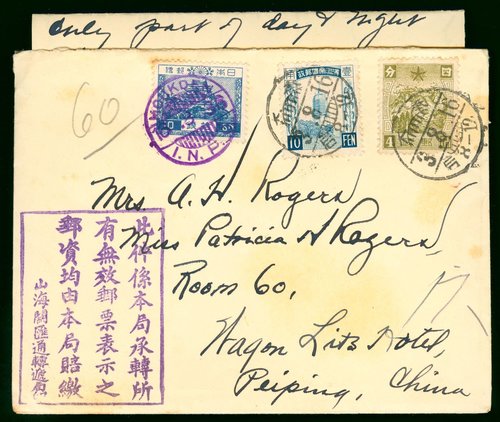 only part of day & night
60
日本郵便
I.N.P.
滿洲帝國郵政
10 FEN
四 分
4
Mrs. A. H. Rogers
Miss Patricia H Rogers,
Room 60,
Wagon Lits Hotel,
Peiping, China
此件係本局承轉所
有無效郵票表示之
郵資均由本局賠繳
山海關匯通轉遞局